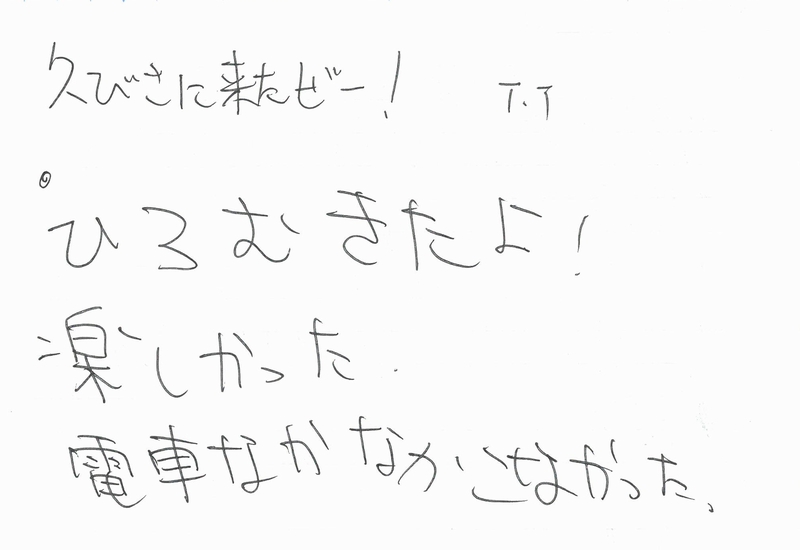 久びさに来たぜー! T.T
◎
ひろむきたよ!
楽しかった.
電車なかなかこなかった。